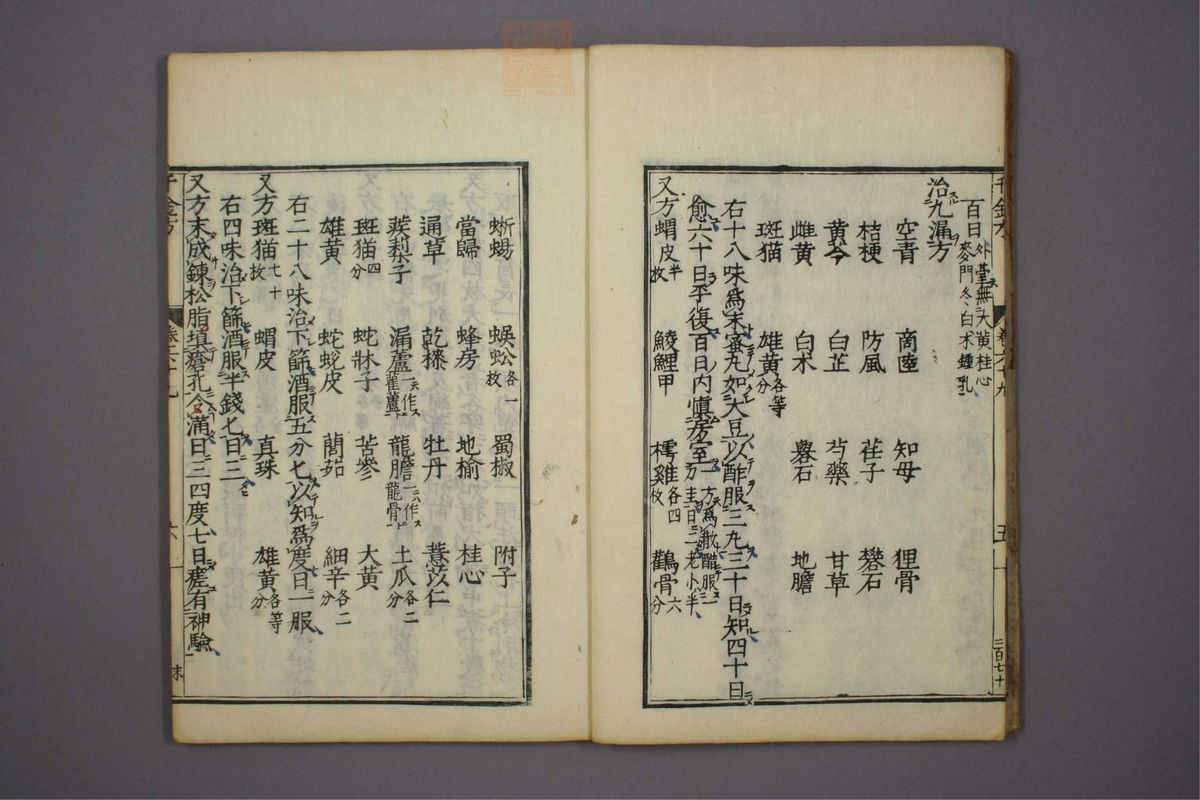 百日外臺無大黄桂心麥門冬白术鍾乳
治九漏方
空青 商陸 知母 狸骨
桔梗 防風 荏子 礜石
黄芩 白芷 芍藥 甘草
雌黄 白术 礬石 地膽
斑猫 雄黄各等分
右十八味爲末蜜丸如大豆以酢服三丸三十日知四十日
愈六十日平復百日内慎房室一方爲散醋服一刀圭日三老小半
又方蝟皮半枚 鯪鯉甲 樗雞各四枚 鸛骨六分
蜥蜴 蜈蚣各一枚 蜀椒 附子
當歸 蜂房 地榆 桂心
通草 乾漆 牡丹 薏苡仁
蒺䔧子 漏蘆一云作雚蘆 龍膽一云作龍骨 土瓜各二分
斑猫四分 蛇牀子 苦參 大黄
雄黄 蛇蛻皮 䕡茹 細辛各二分
右二十八味治下篩酒服五分匕以知爲度日一服
又方斑猫七十枚 蝟皮 真珠 雄黄各等分
右四味治下篩酒服半錢匕日三
又方末成鍊松脂塡瘡孔令滿日三四度七日瘥有神驗